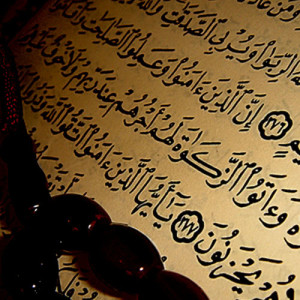 وَمَنْ عَادَ
ٱلرِّبَوٰا۟ وَيُرْبِى ٱلصَّدَقَٰتِ وَٱللَّهُ
إِنَّ ٱلَّذِينَ ءَامَنُوا۟ وَعَمِلُوا۟ ٱلصَّٰلِحَٰتِ ٢٧٦
وَءَاتَوُا۟ ٱلزَّكَوٰةَ لَهُمْ أَجْرُهُمْ عِندَ رَبِّهِمْ وَلَا خَوْفٌ عَلَيْهِمْ
هُمْ يَحْزَنُونَ ٢٧٧ يَٰٓأَيُّهَا ٱلَّذِينَ ءَامَنُوا۟ ٱتَّقُوا۟ ٱللَّهَ وَذَرُوا۟